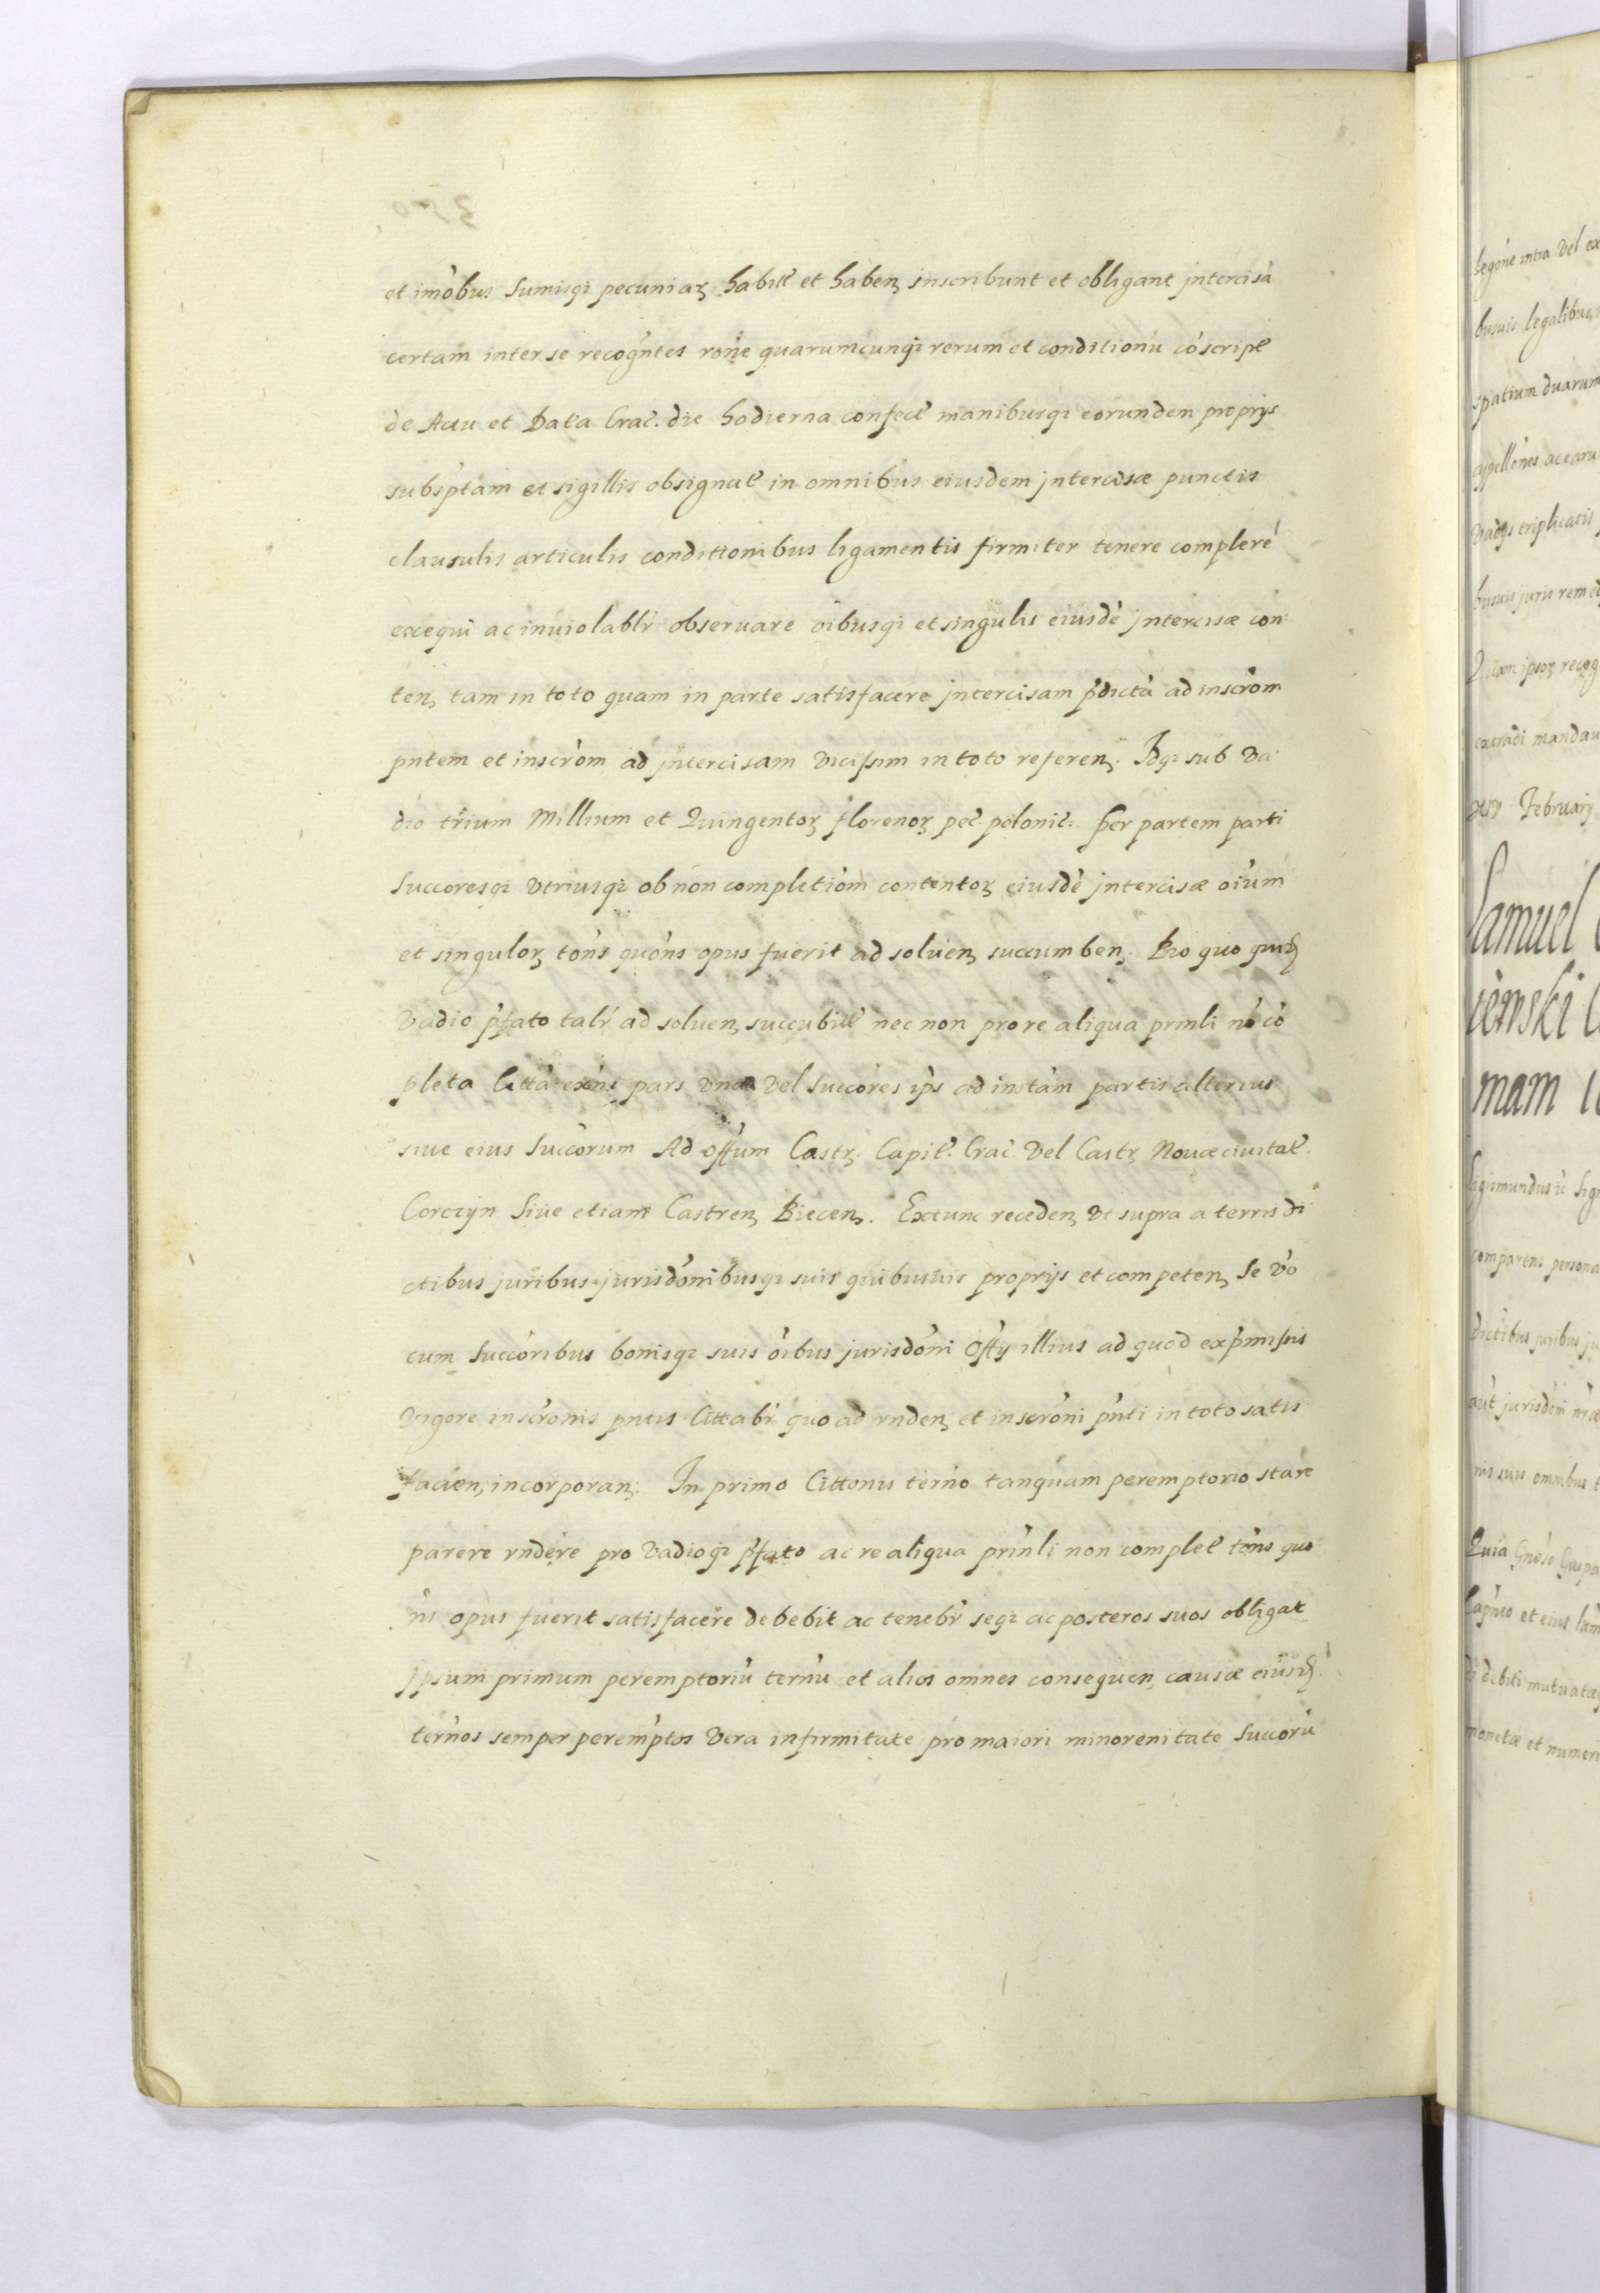 et imobus Sumisq; pecuniaꝝ habitt et haben, inscribunt et obligant intercisã
certam inter se recogntes rone quarumcunq; rerum et conditionũ coscript
de Actu et Data Crac. die hodierna confect manibusq; eorundem proprys
subsptam et sigillis obsignat in omnibus eiusdem jntercisæ punctis
clausulis articulis conditionibus ligamentis firmiter tenere complere
exequi ac inviolablr observare oibusq; et singulis eiusdẽ jntercisæ con
ten, tam in toto quam in parte satisfacere jntercisam pdictã ad inscrom
pntem et inscrom ad jntercisam vicissim in toto referen, Idq; sub va
dio trium Millium et Quingentoꝝ florenoꝝ pec. polonic. per partem parti
Succoresq; vtriusq; ob non completiom contentoꝝ eiusdẽ jntercisæ oium
et singuloꝝ tons quons opus fuerit ad solven, succumben, Pro quo quid
Vadio pfato talr ad solven, succubitt nec non pro re aliqua prinli nõ cõ
pleta Citta exns pars vna vel Succores ips ad instam partis alterius
sive eius Succorum Ad Offum Castr, Capit. Crac. Vel Castr, Novæ civitat.
Corczyn Sive etiam Castren, Biecen, Extunc receden, vt supra a terris di
ctibus juribus jurisdonibusq; suis quibusvis proprijs et competen, Se vo
cum Succoribus bonisq; suis oibus jurisdoni Offy illius ad quod expmissis
Vigore inscronis pntis Cittabr quo ad rnden, et inscroni pnti in toto satis
facien, incorporan, In primo Cittonis terno tanquam peremptorio stare
parere rndere pro Vadioq; pfato ac re aliqua prinli non complet tons quo
ns opus fuerit satisfacere debebit ac tenebr seq; ac posteros suos obligat
Ipsum primum peremptoriũ ternũ et alios omnes consequen, causæ eiusd
ternos semper peremptos Vera infirmitate pro maiori minorenitate Succorũ
legone intra Vel ex
busvis legalibus
spatium duarum
appellones ac earu
Vadys triplicatis
busvis juris remed
extradi mandav
Februarij
Samuel
mam
Sigismundus
comparens persona
dictibus juribus ju
nis suis omnibus t
Quia
et eius
debiti mutuatæ
monetæ et numeri